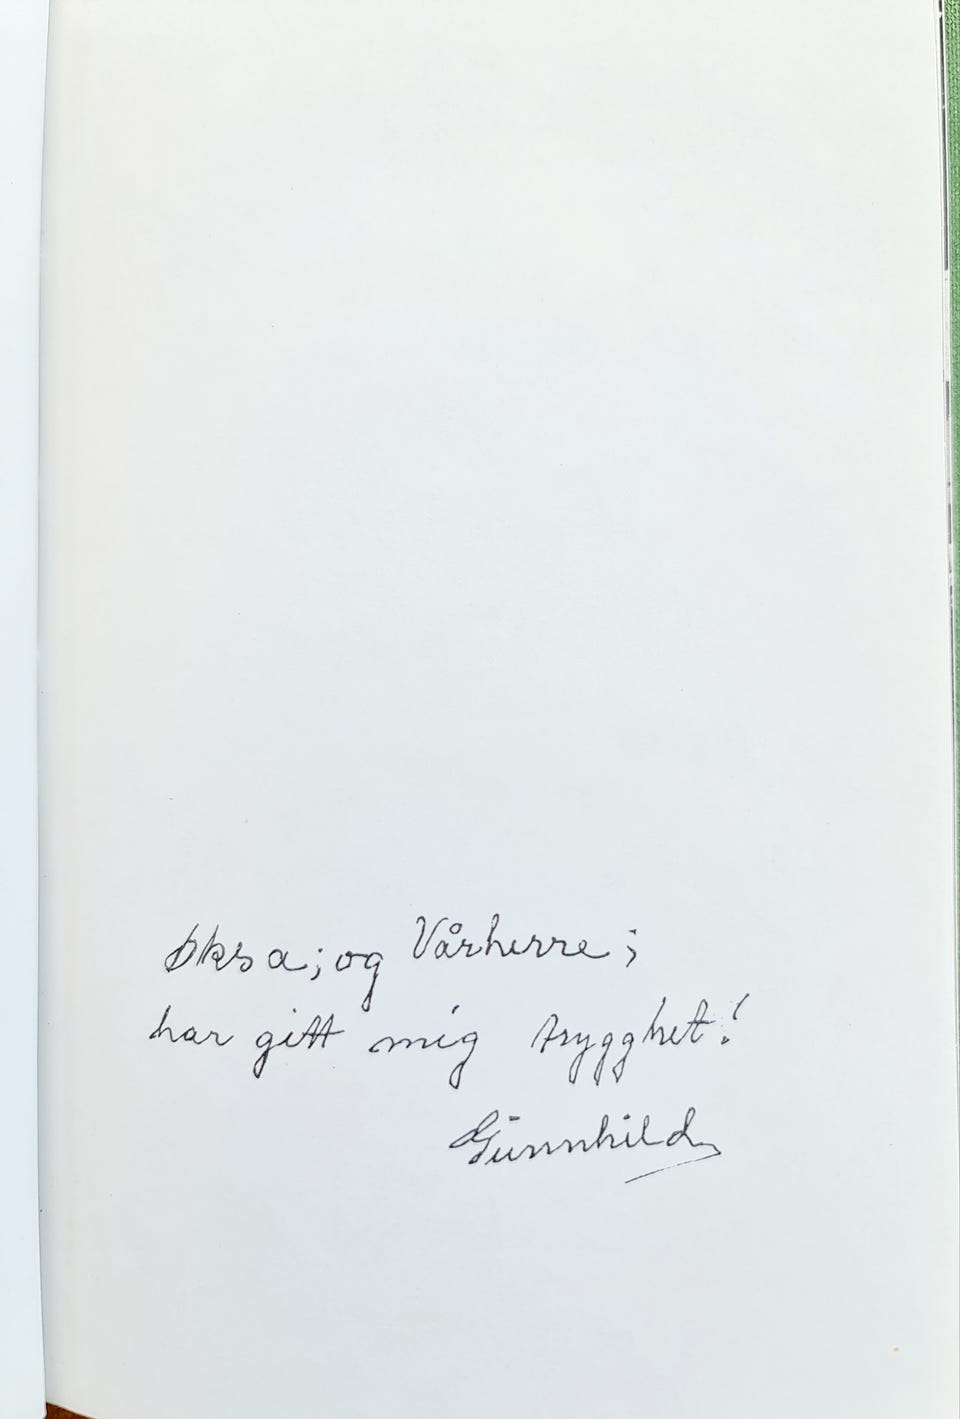 Øksa; og Vårherre;
har gitt mig trygghet!
Gunnhild